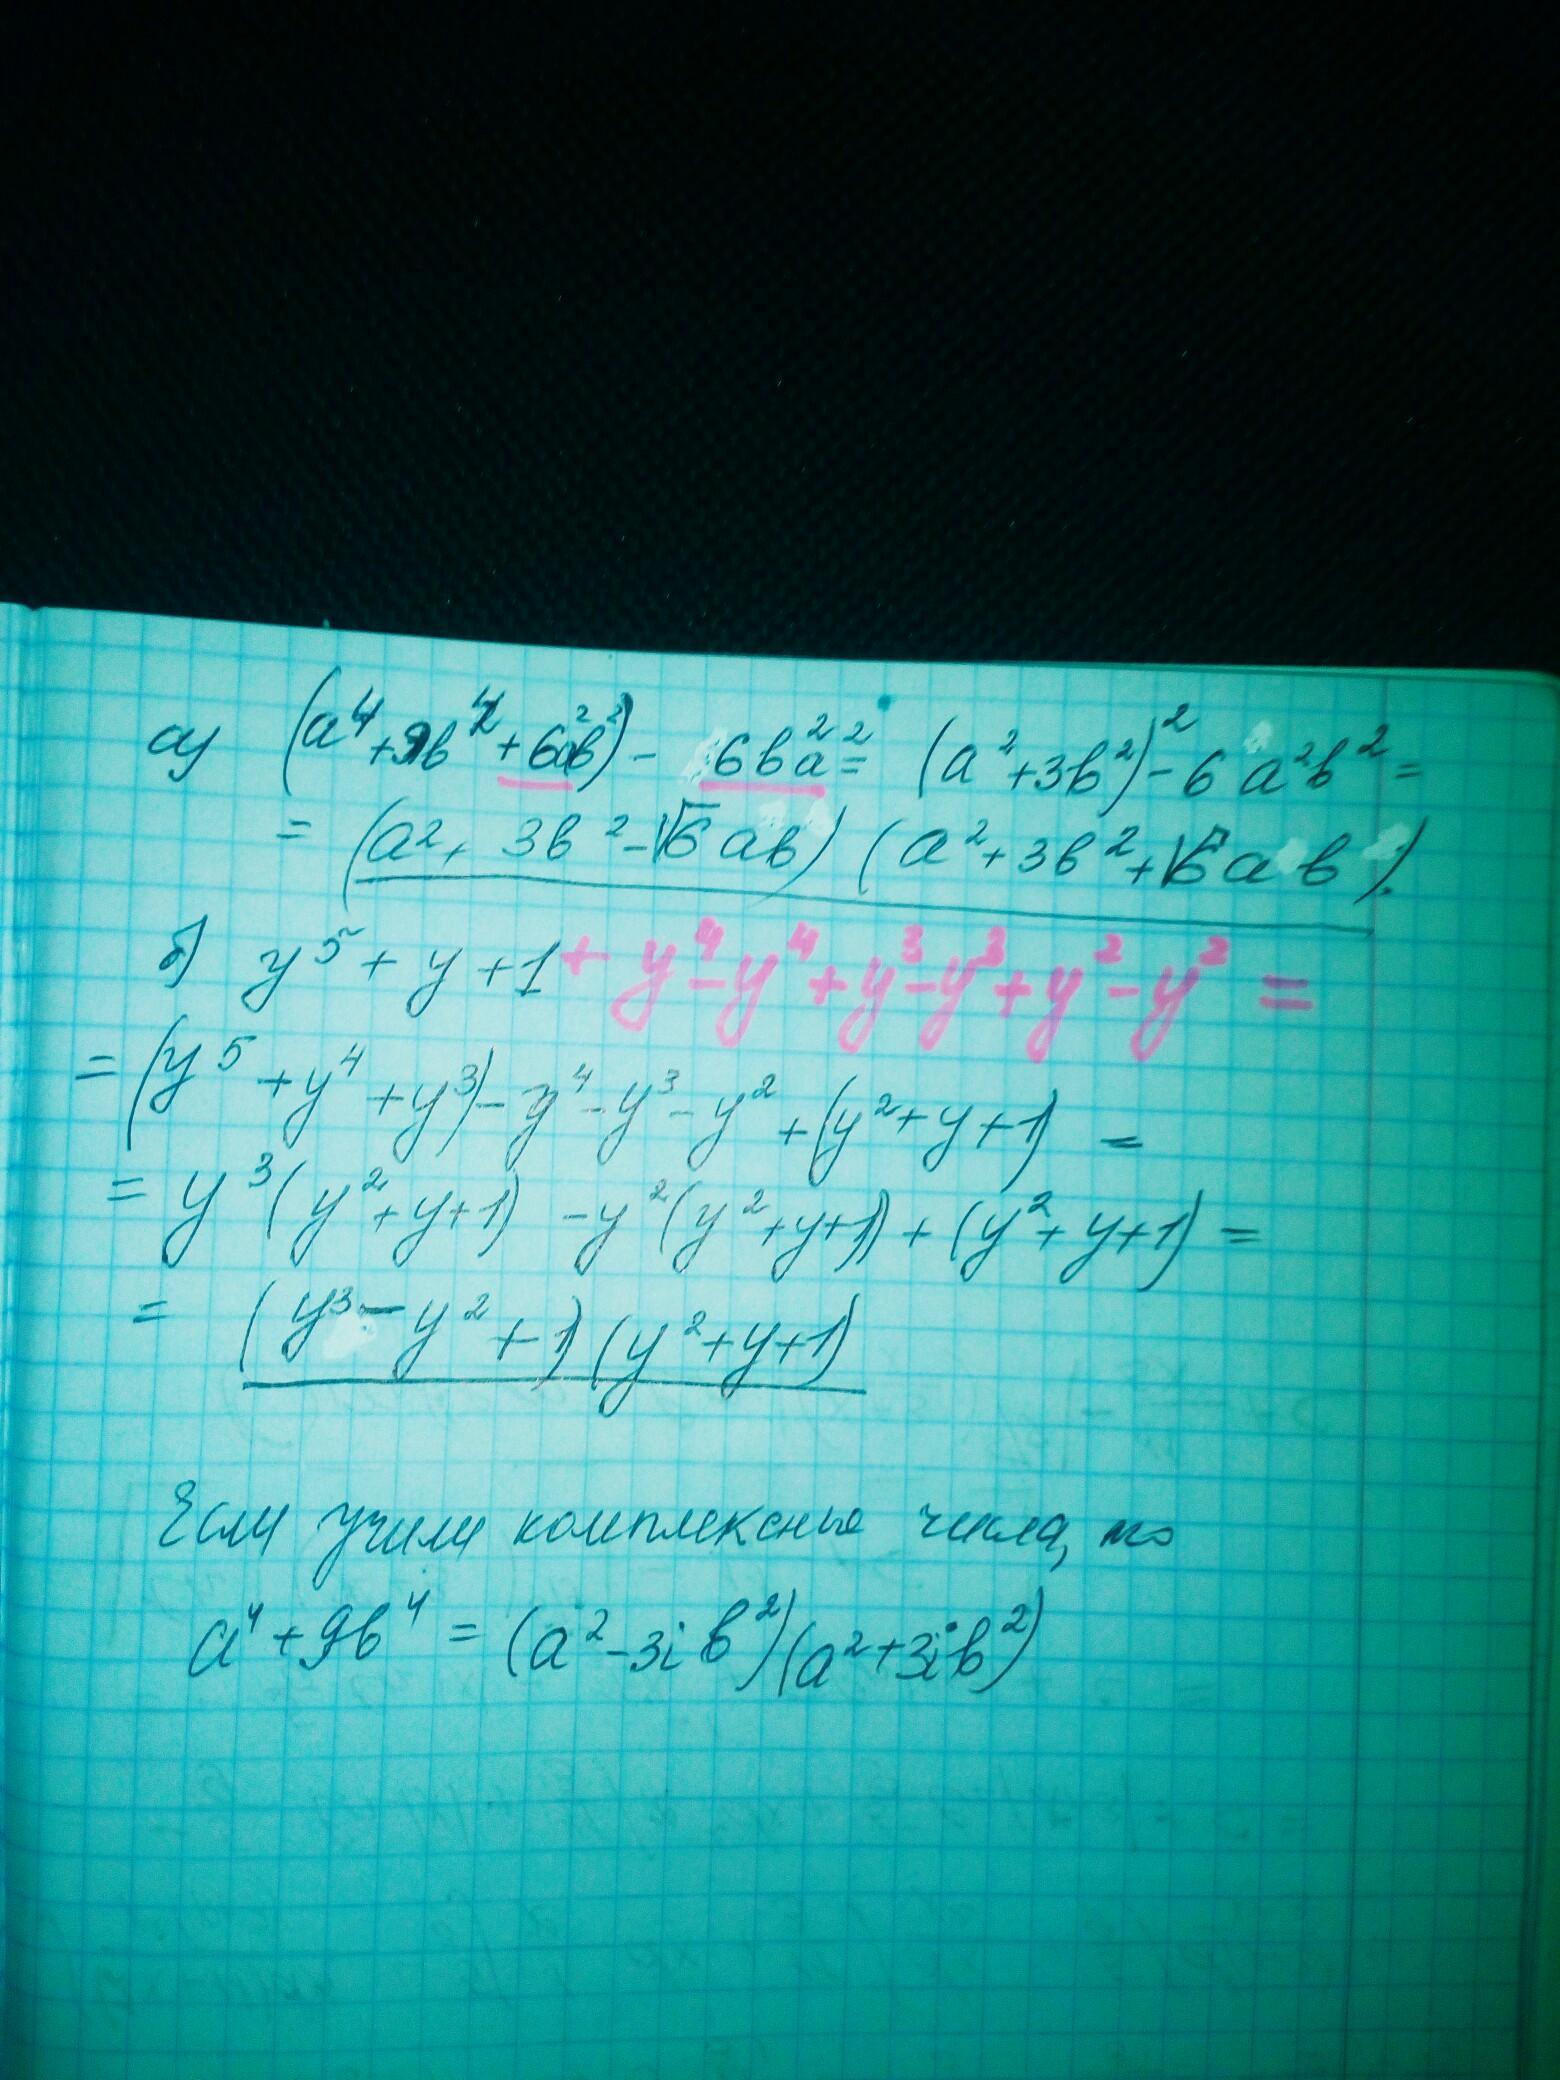 а) (a⁴+9b⁴+6a²b²)-6b²a²= (a²+3b²)²-6a²b²=
= (a²+3b²-√6ab)(a²+3b²+√6ab).
б) y⁵+y+1+y⁴-y⁴+y³-y³+y²-y²=
=(y⁵+y⁴+y³)-y⁴-y³-y²+(y²+y+1)=
=y³(y²+y+1)-y²(y²+y+1)+(y²+y+1)=
= (y³-y²+1)(y²+y+1)
Если учили комплексные числа, то
a⁴+9b⁴=(a²-3ib²)(a²+3ib²)